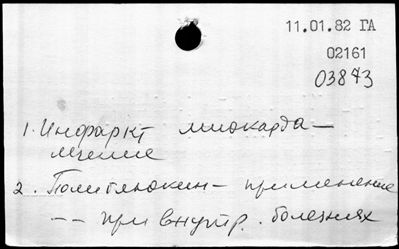 11.01.82 ГА
02161
03873
1. Инфаркт миокарда —
лечение
2. Полиглюкин — применение
— — при внутр. болезнях